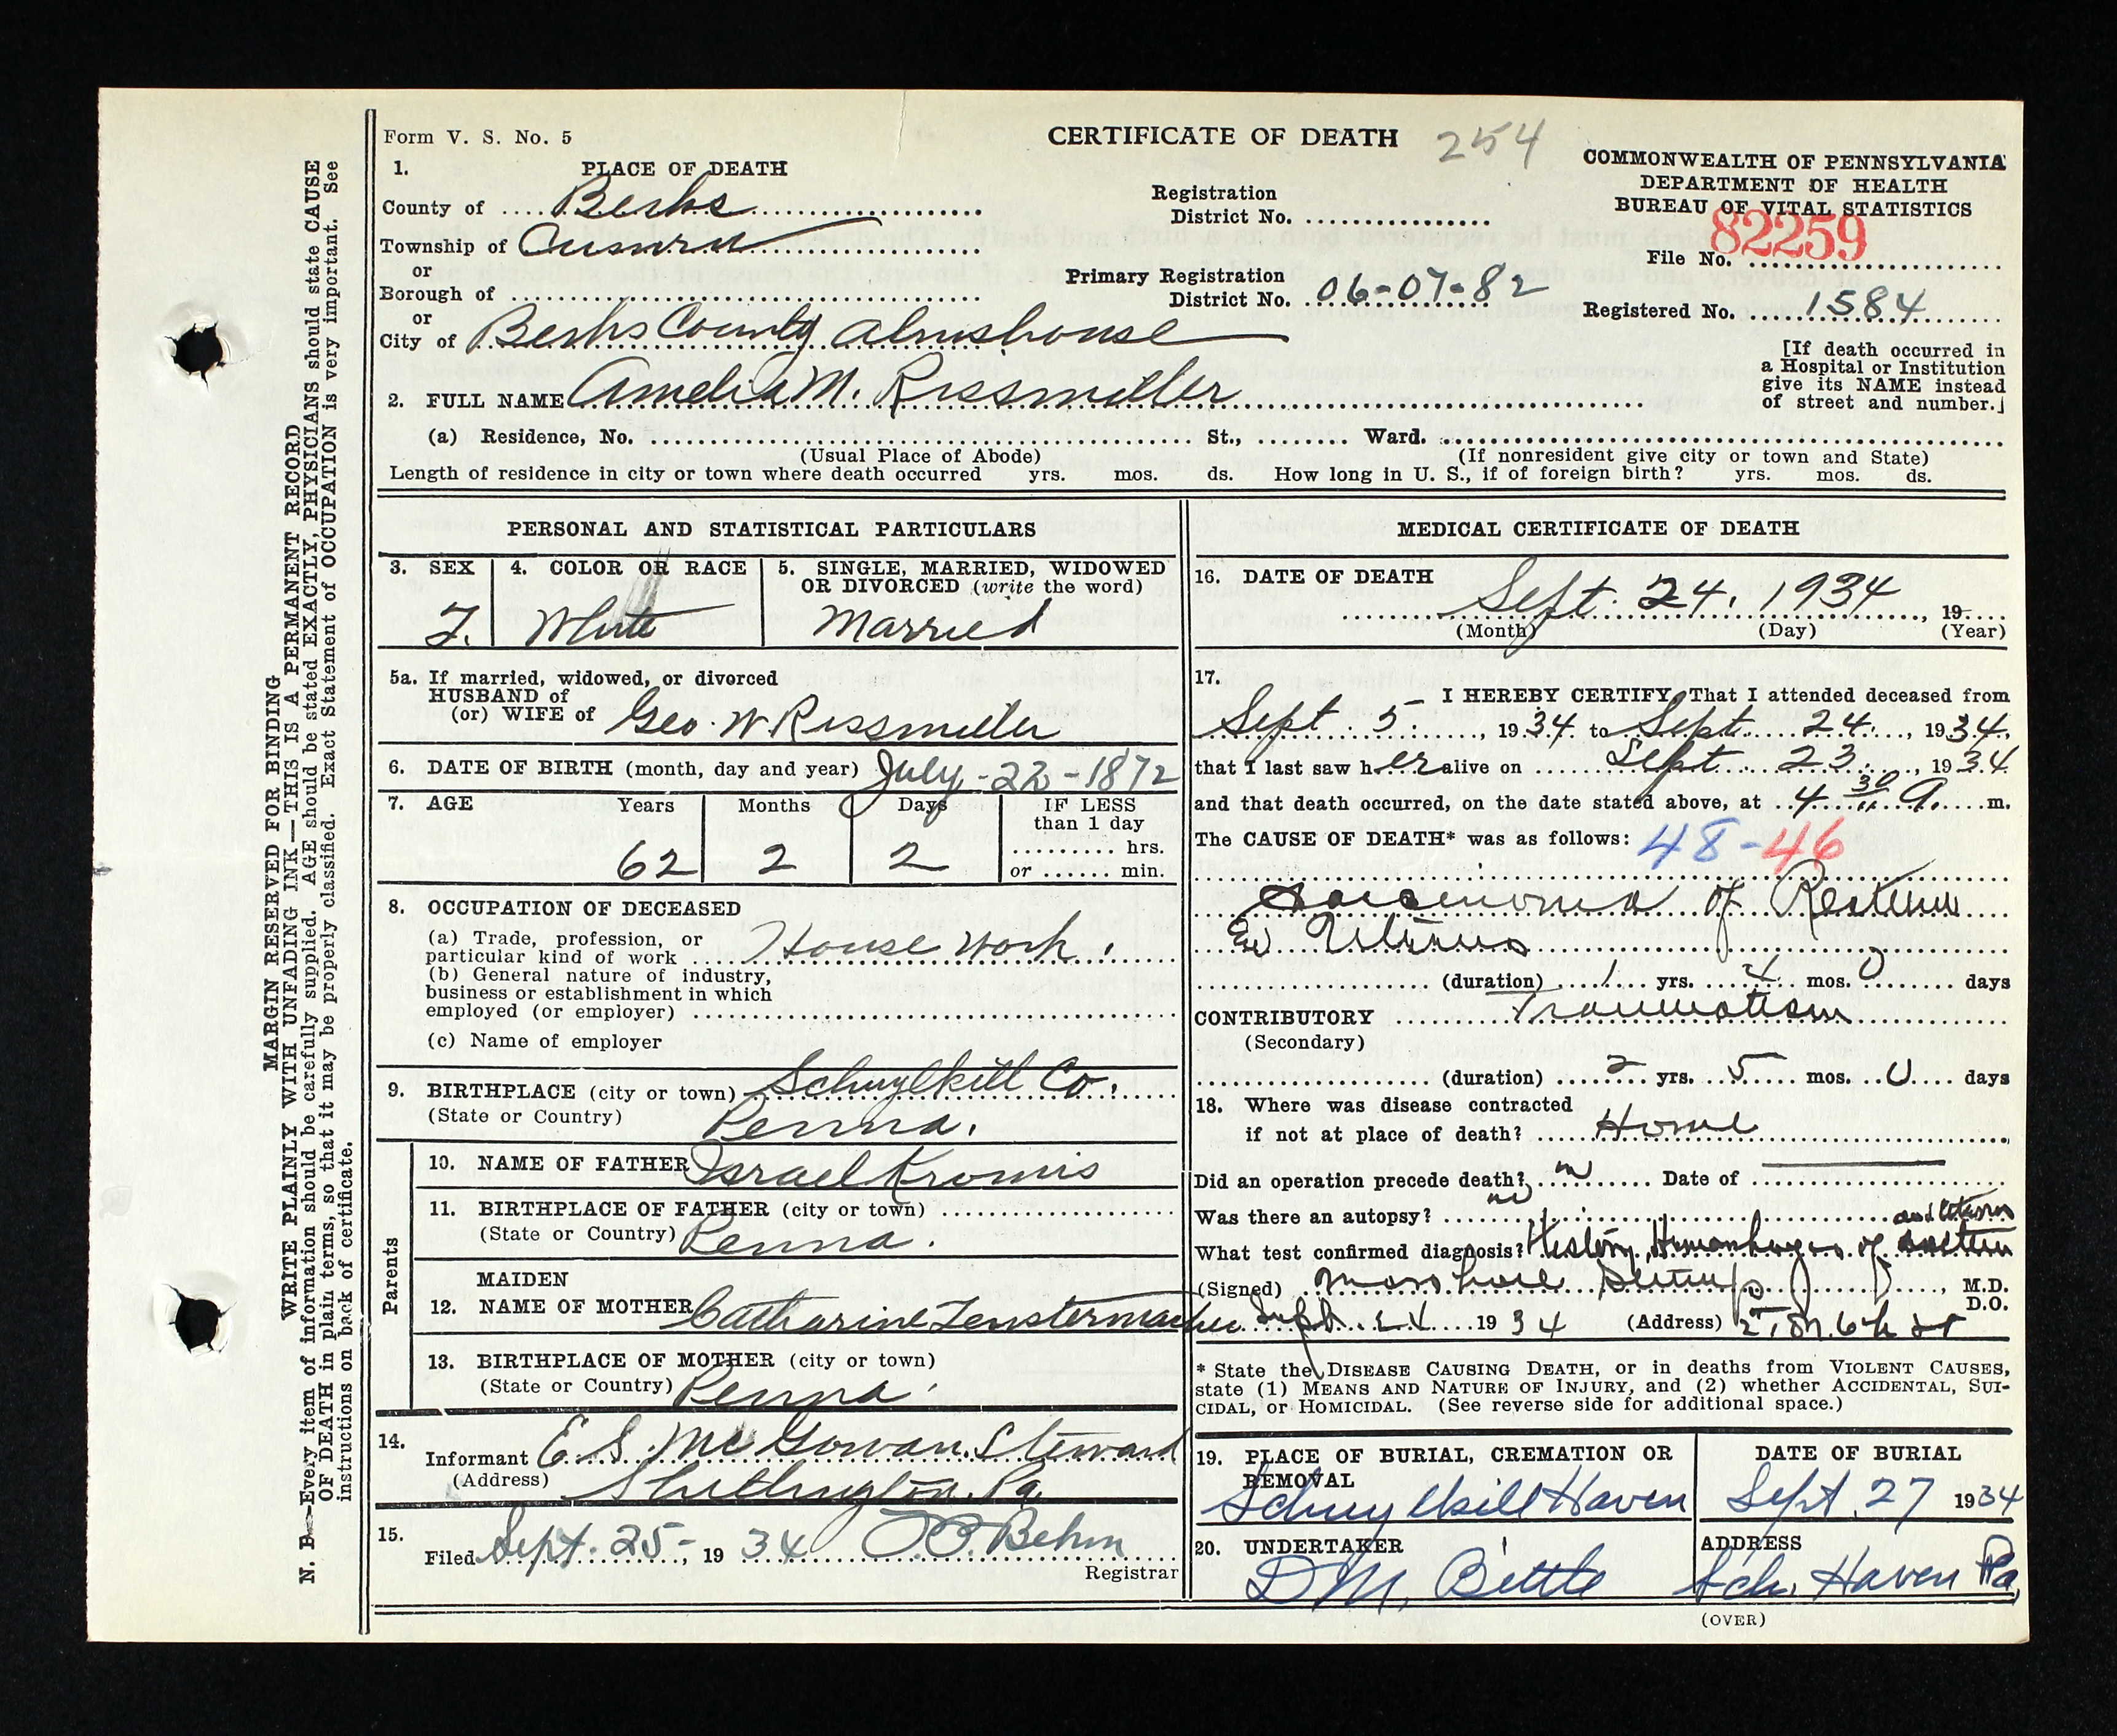 Form V. S. No. 5
CERTIFICATE OF DEATH 254
COMMONWEALTH OF PENNSYLVANIA
DEPARTMENT OF HEALTH
BUREAU OF VITAL STATISTICS
File No. 82259
Registered No. 1584
1. PLACE OF DEATH
County of Berks
Township of Cumru
or
Borough of
or
City of Berks County Almshouse
Registration
District No.
Primary Registration
District No. 06-07-82
[If death occurred in
a Hospital or Institution
give its NAME instead
of street and number.]
2. FULL NAME Amelia M. Rissmiller
(a) Residence, No. St., Ward.
(Usual Place of Abode) (If nonresident give city or town and State)
Length of residence in city or town where death occurred yrs. mos. ds. How long in U. S., if of foreign birth? yrs. mos. ds.
PERSONAL AND STATISTICAL PARTICULARS
3. SEX 4. COLOR OR RACE 5. SINGLE, MARRIED, WIDOWED
OR DIVORCED (write the word)
F. White Married
5a. If married, widowed, or divorced
HUSBAND of
(or) WIFE of Geo. W Rissmiller
6. DATE OF BIRTH (month, day and year) July-22-1872
7. AGE Years Months Days IF LESS
than 1 day
hrs.
62 2 2 or min.
8. OCCUPATION OF DECEASED
(a) Trade, profession, or
particular kind of work House work.
(b) General nature of industry,
business or establishment in which
employed (or employer)
(c) Name of employer
9. BIRTHPLACE (city or town) Schuylkill Co.
(State or Country) Penna.
Parents
10. NAME OF FATHER Israel Kromis
11. BIRTHPLACE OF FATHER (city or town)
(State or Country) Penna.
MAIDEN
12. NAME OF MOTHER Catharine Fenstermacher
13. BIRTHPLACE OF MOTHER (city or town)
(State or Country) Penna.
14.
Informant E. S. McGowan. Steward
(Address) Shillington. Pa.
15.
Filed Sept. 25-, 19 34 Behm
Registrar
MEDICAL CERTIFICATE OF DEATH
16. DATE OF DEATH Sept. 24. 1934, 19
(Month) (Day) (Year)
17.
I HEREBY CERTIFY, That I attended deceased from
Sept. 5, 1934. to Sept. 24, 1934.
that I last saw her alive on Sept. 23, 1934
and that death occurred, on the date stated above, at 4 30 A. m.
The CAUSE OF DEATH* was as follows: 48-46
of Rectum
Uterus
(duration) 1 yrs. 4 mos. 0 days
CONTRIBUTORY Traumatism
(Secondary)
(duration) 2 yrs. 5 mos. 0 days
18. Where was disease contracted
if not at place of death? Home
Did an operation precede death? no Date of
Was there an autopsy? no
What test confirmed diagnosis? History, Hemorrhages of rectum and Uterus
(Signed) M.D.
D.O.
Sept. 24 19 34 (Address) N. 6th St
* State the DISEASE CAUSING DEATH, or in deaths from VIOLENT CAUSES,
state (1) MEANS AND NATURE OF INJURY, and (2) whether ACCIDENTAL, SUI-
CIDAL, or HOMICIDAL. (See reverse side for additional space.)
19. PLACE OF BURIAL, CREMATION OR
REMOVAL
Schuylkill Haven
DATE OF BURIAL
Sept. 27 1934
20. UNDERTAKER
D M. Bittle
ADDRESS
Sch. Haven Pa,
(OVER)
MARGIN RESERVED FOR BINDING
WRITE PLAINLY WITH UNFADING INK—THIS IS A PERMANENT RECORD
N. B.—Every item of information should be carefully supplied. AGE should be stated EXACTLY, PHYSICIANS should state CAUSE
OF DEATH in plain terms, so that it may be properly classified. Exact Statement of OCCUPATION is very important. See
instructions on back of certificate.